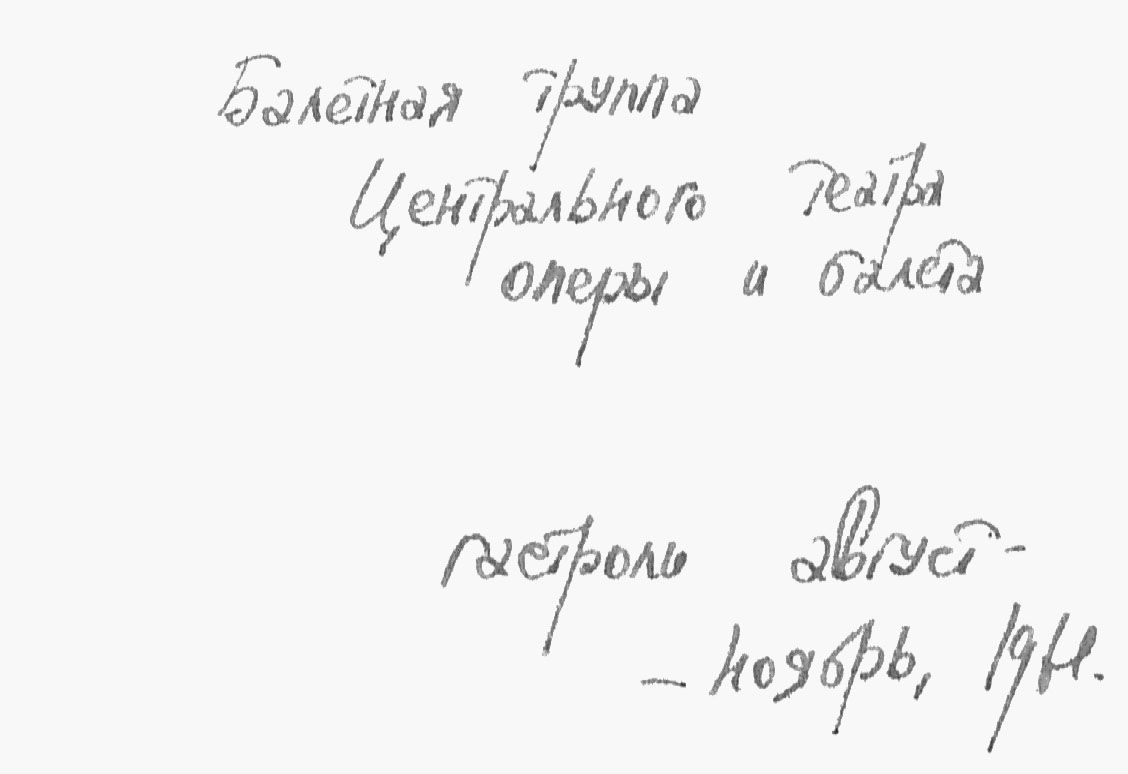 Балетная труппа
Центрального театра
оперы и балета
гастроли август -
- ноябрь,